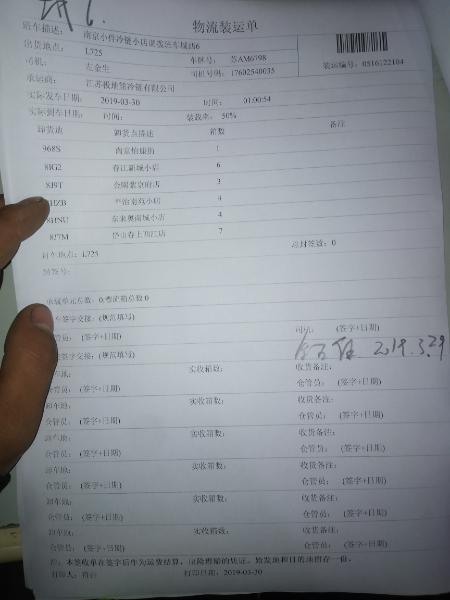 物流装运单
路车描述: 南京小件冷链小店
出货地点: L725 车牌号: 苏AM6798
司机: 左金生 司机号码: 17602540035 装运编号: 0516122104
承运商: 江苏极地熊冷链有限公司
实际发车日期: 2019-03-30 时间: 01:00:54
实际到车日期: 时间: 装载率: 50%
卸货地 卸货点描述 箱数 备注
968S 1
8IG2 春江新城小店 6
8J9T 3
HZB 4
8HNU 东来奥南城小店 4
8J7M 7
封车地点: L725 总封签数: 0
封签号:
承载单元总数: 0,整流箱总数0
车签字交接: (规范填写)
(签字+日期) 司机: (签字+日期)
签字交接: (规范填写) 2019.3.29
卸车地: 实收箱数: 收货备注:
仓管员: (签字+日期) 仓管员: (签字+日期)
卸车地: 实收箱数: 收货备注:
仓管员: (签字+日期) 仓管员: (签字+日期)
卸车地: 实收箱数: 收货备注:
仓管员: (签字+日期) 仓管员: (签字+日期)
卸车地: 实收箱数: 收货备注:
仓管员: (签字+日期) 仓管员: (签字+日期)
卸车地: 实收箱数: 收货备注:
仓管员: (签字+日期) 仓管员: (签字+日期)
卸车地: 实收箱数: 收货备注:
仓管员: (签字+日期) 仓管员: (签字+日期)
注: 本签收单在签字后作为运费结算、保险理赔的凭证, 始发地和目的地留存一份。
打印人: 打印日期: 2019-03-30